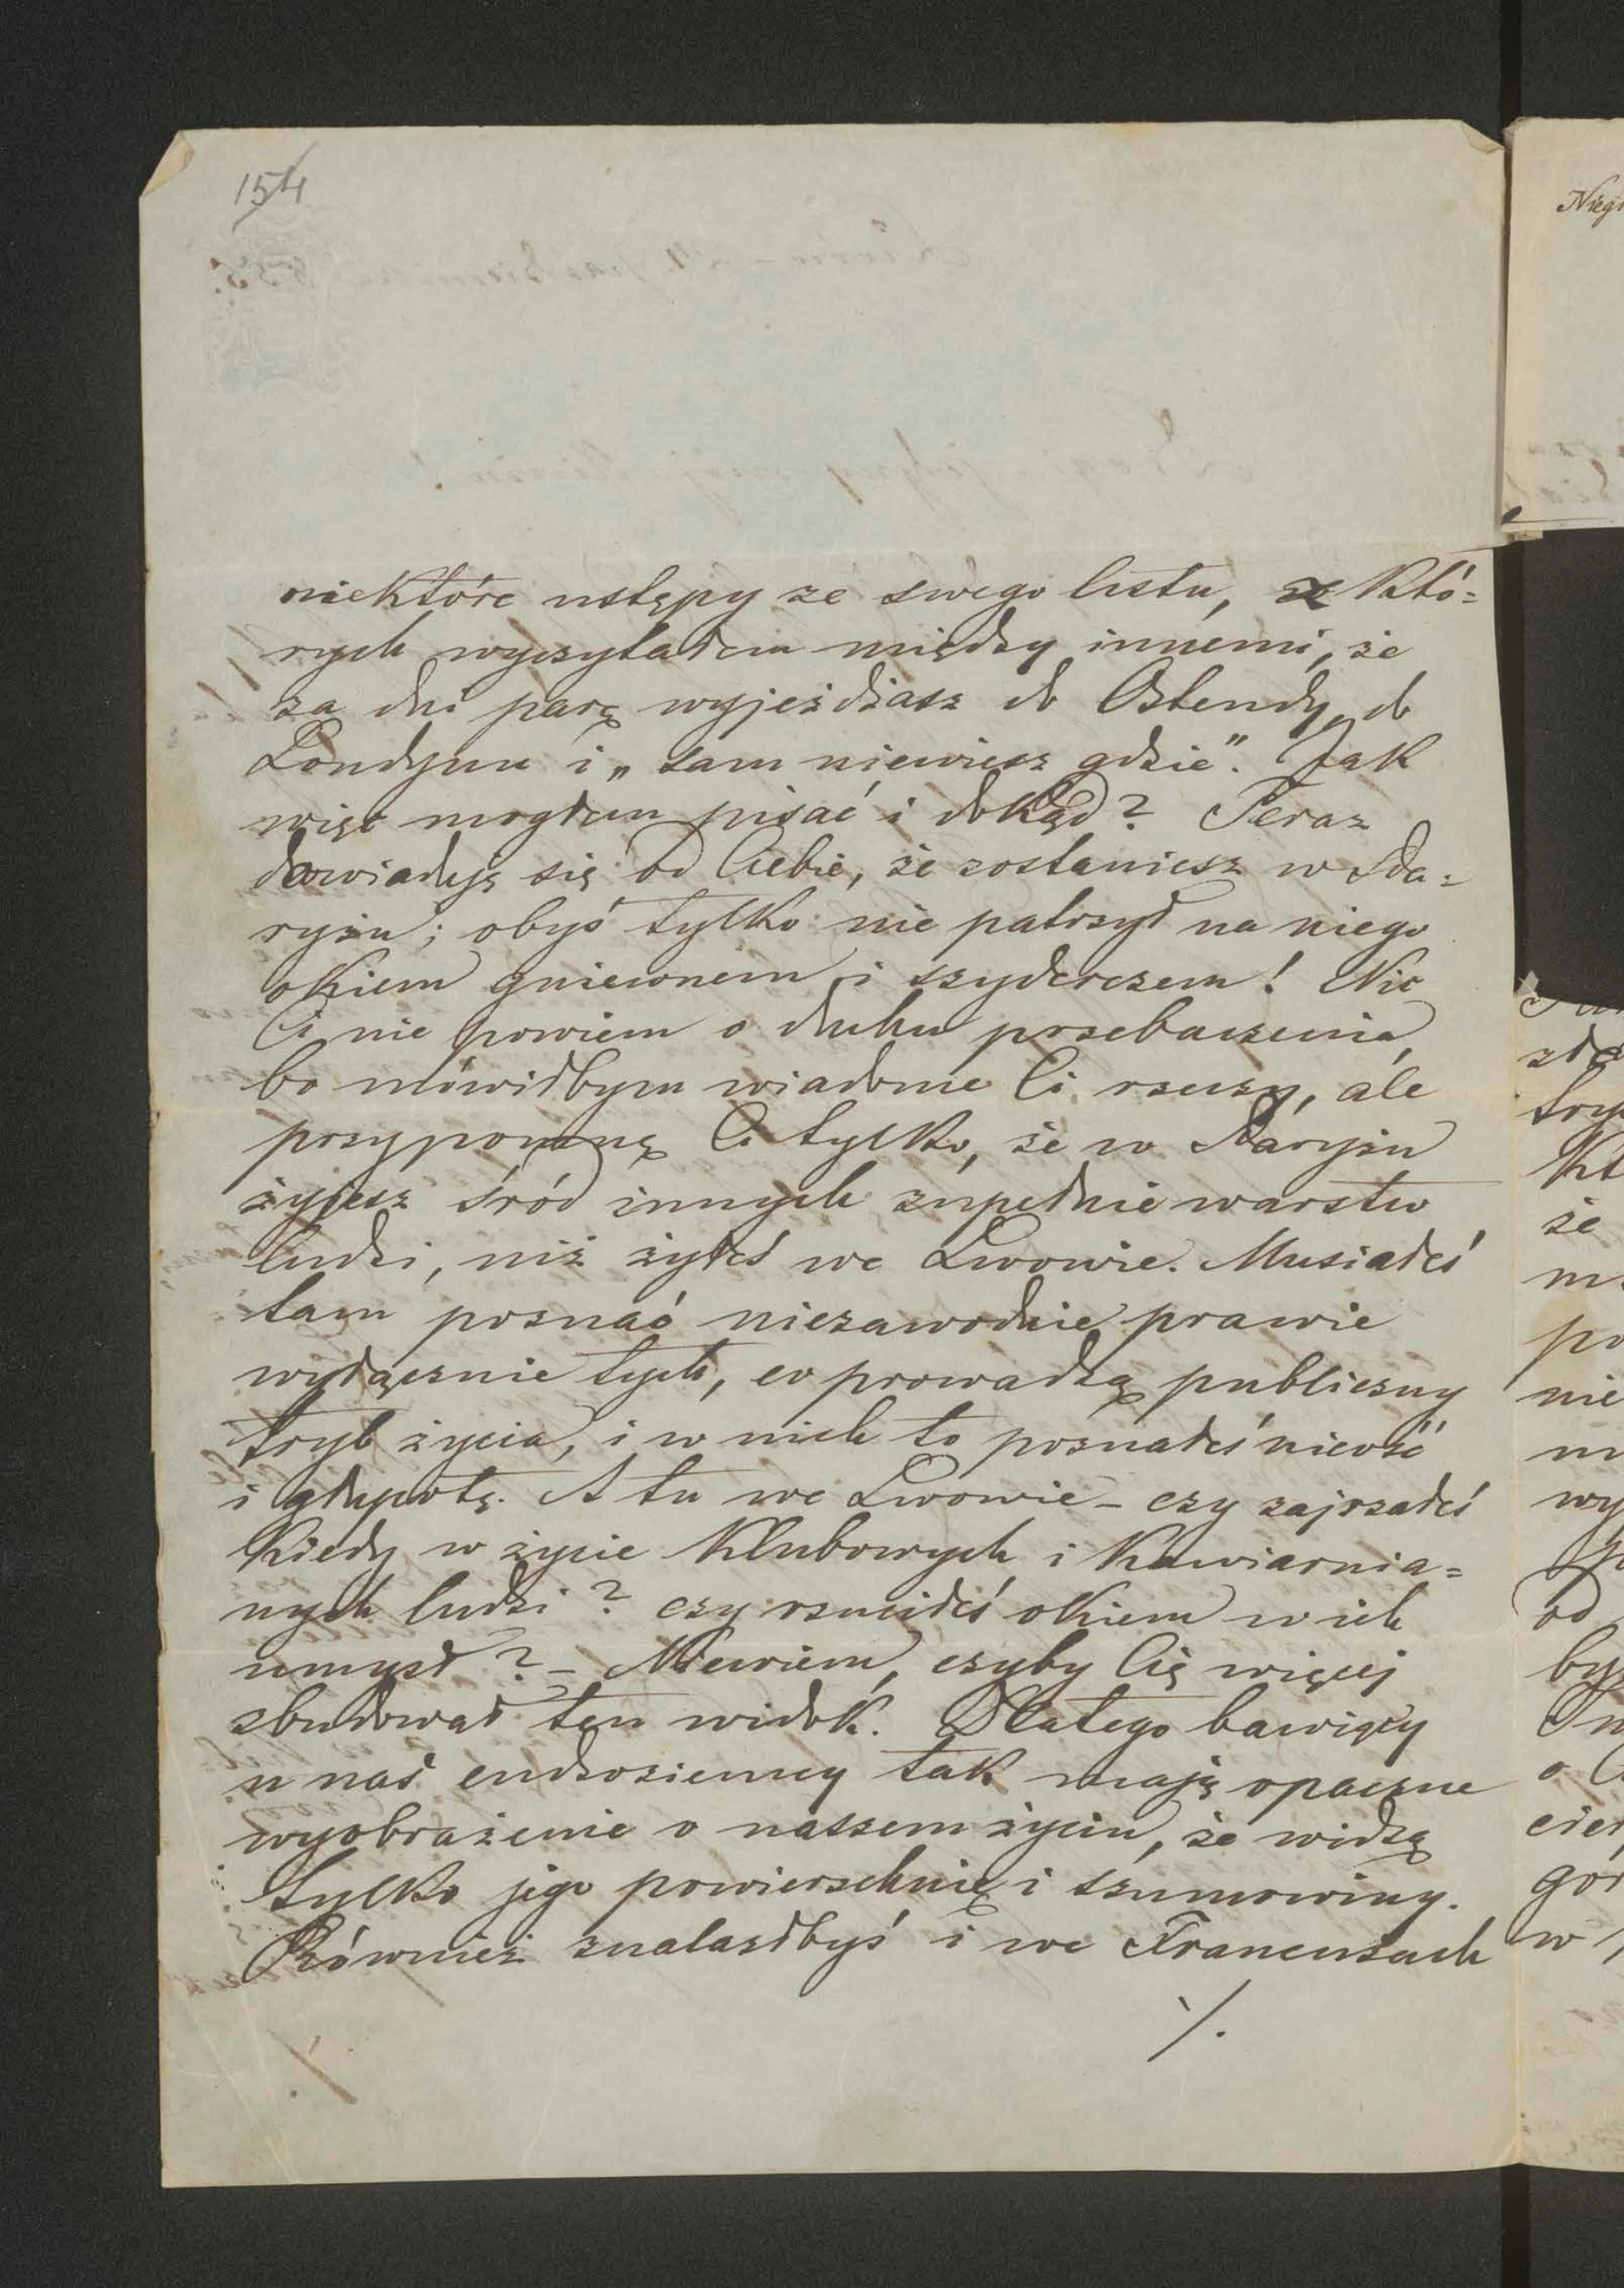 154
niektóre ustępy ze swego listu, z któ=
rych wyczytałem między innemi, że
za dni parę wyjeżdżasz do Ostendy, do
Londynu i „sam niewiesz gdzie". Jak
więc mogłem pisać i dokąd? Teraz
dowiaduję się od Ciebie, że zostaniesz w Pa=
ryżu; obyś tylko nie patrzył na niego
okiem gniewnem i szyderczem! Nic
Ci nie powiem o duchu przebaczenia,
bo mówiłbym wiadome Ci rzeczy, ale
przypomnę Ci tylko, że w Paryżu
żyjesz śród innych zupełnie warstw
ludzi, niż żyłeś we Lwowie. Musiałeś
tam poznać niezawodnie prawie
wyłącznie tych, co prowadzą publiczny
tryb życia, i w nich to poznałeś nicość
i głupotę. A tu we Lwowie – czy zajrzałeś
kiedy w życie klubowych i kawiarnia=
nych ludzi? czy rzuciłeś okiem w ich
umysł? – Niewiem, czyby Cię więcej
zbudował ten widok. Dlatego bawiący
u nas cudzoziemcy tak mają opaczne
wyobrażenie o naszem życiu, że widzą
tylko jego powierzchnię i szumowiny.
Również znalazłbyś i we Francuzach
/.
Nieg
zła
try
kt
że
m
po
nie
m
wy
p
od
by
o C
cier
gór
w